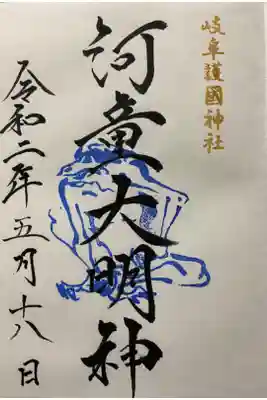 岐阜護國神社
河童大明神
令和二年五月十八日